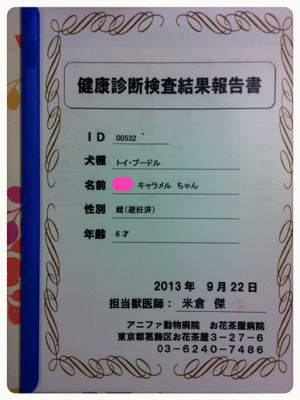 健康診断検査結果報告書
ID 00532
犬種 トイ・プードル
名前 キャラメル ちゃん
性別 雌(避妊済)
年齢 6才
2013年 9月22日
担当獣医師: 米倉 傑
アニファ動物病院 お花茶屋病院
東京都葛飾区お花茶屋3-27-6
03-6240-7486